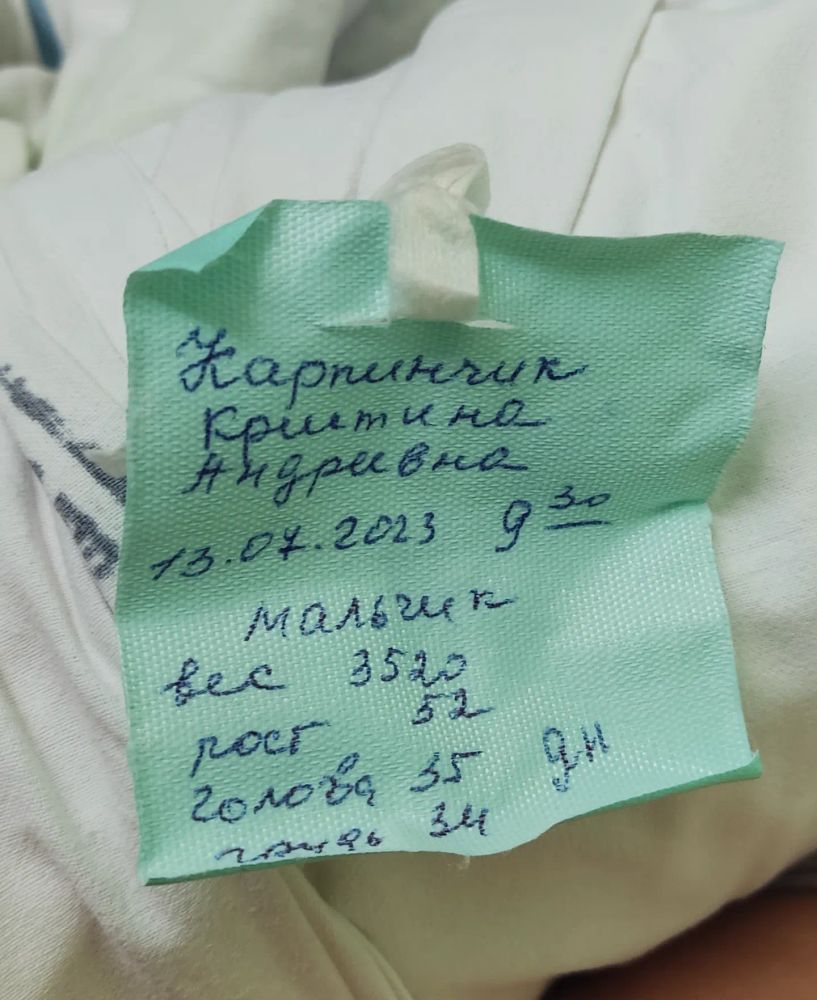 Карпинчик
Кристина
Андривна
13.07.2023 9 30
мальчик
вес 3520
рост 52
голова 35 дн
грудь 34